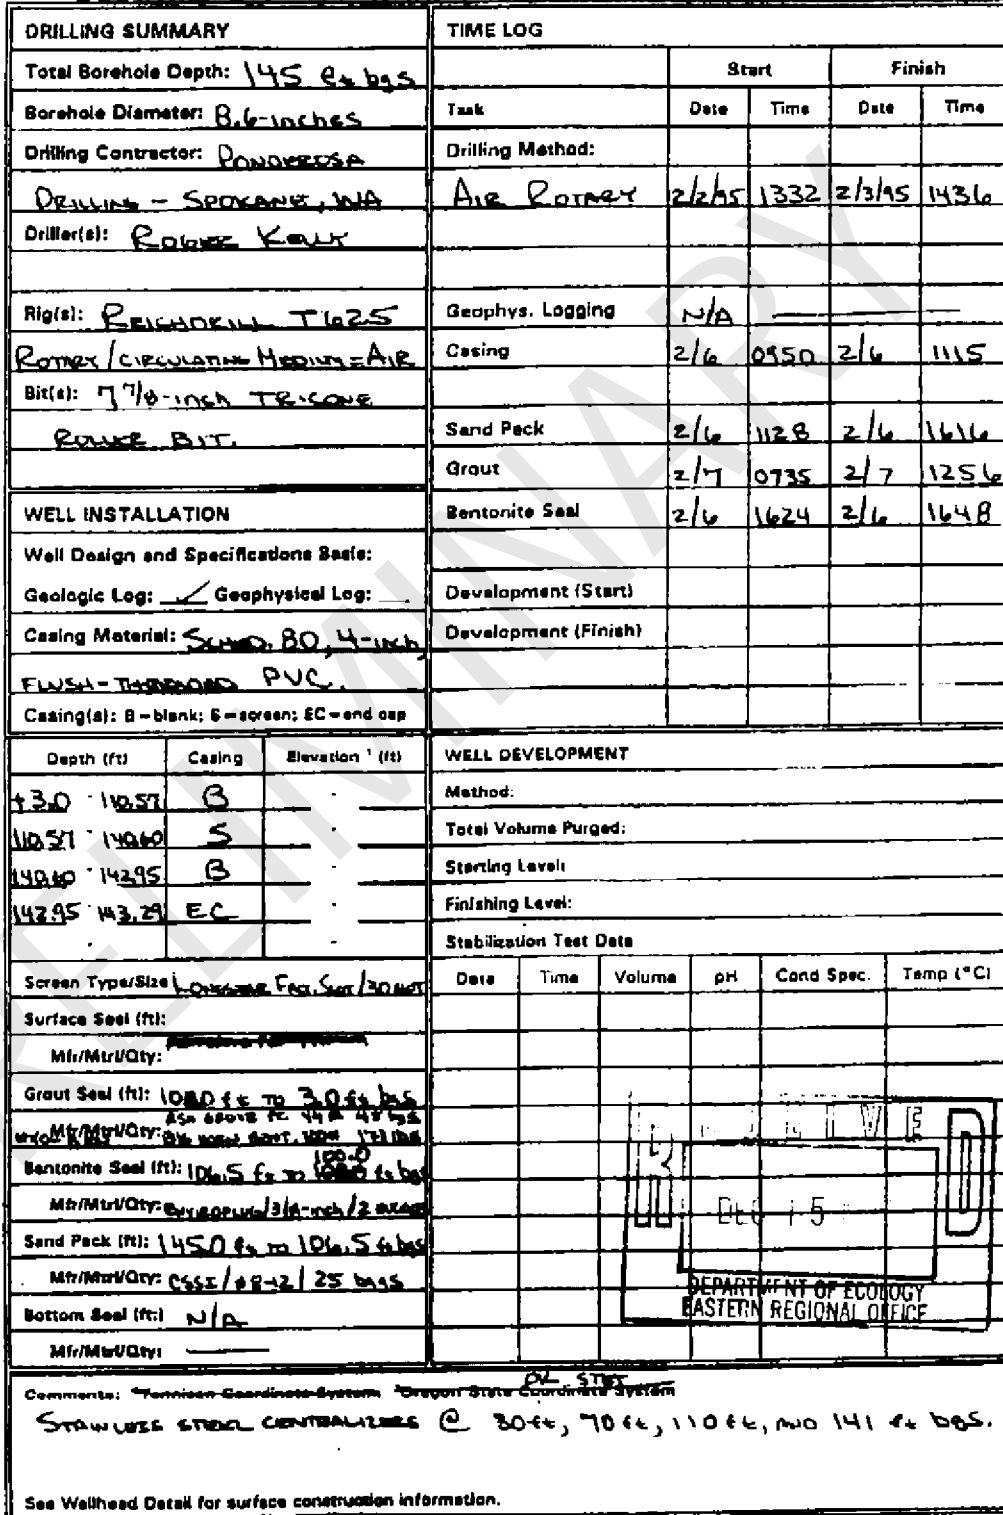 DRILLING SUMMARY
Total Borehole Depth: 145 ft bgs
Borehole Diameter: 8.6-inches
Drilling Contractor: PONDEROSA
DRILLING - SPOKANE, WA
Driller(s):
Rig(s): REICHDRILL T625
ROTARY/CIRCULATING MEDIUM=AIR
Bit(s): 7 7/8-inch TRI-CONE
ROLLER BIT.
WELL INSTALLATION
Well Design and Specifications Basis:
Geologic Log: ✓ Geophysical Log: __
Casing Material: SCHED. 80, 4-inch,
FLUSH-THREADED PVC.
Casing(s): B=blank; S=screen; EC=end cap
Depth (ft) Casing Elevation ¹ (ft)
+3.0 - 110.57 B -
110.57 - 140.60 S -
140.60 - 142.95 B -
142.95 - 143.29 EC -
-
Screen Type/Size
Surface Seal (ft):
Mfr/Mtrl/Qty:
Grout Seal (ft): to 3.0 ft bgs
Mfr/Mtrl/Qty:
100.0
Bentonite Seal (ft): 106.5 ft to ft bgs
Mfr/Mtrl/Qty: ENVIROPLUG/3/8-inch/2
Sand Pack (ft): 145.0 ft to 106.5 ft bgs
Mfr/Mtrl/Qty: CSSI/#8-12/25 bags
Bottom Seal (ft): N/A
Mfr/Mtrl/Qty: ——
TIME LOG
Start Finish
Task Date Time Date Time
Drilling Method:
AIR ROTARY 2/2/95 1332 2/3/95 1436
Geophys. Logging N/A ——
Casing 2/6 0950 2/6 1115
Sand Pack 2/6 1128 2/6 1616
Grout 2/7 0735 2/7 1256
Bentonite Seal 2/6 1624 2/6 1648
Development (Start)
Development (Finish)
WELL DEVELOPMENT
Method:
Total Volume Purged:
Starting Level:
Finishing Level:
Stabilization Test Data
Date Time Volume pH Cond Spec. Temp (°C)
DEPARTMENT OF ECOLOGY
EASTERN REGIONAL OFFICE
Comments: ¹Tennison Coordinate System ²Oregon State Coordinate System
STAINLESS STEEL CENTRALIZERS @ 30 ft, 70 ft, 110 ft, AND 141 ft bgs.
See Wellhead Detail for surface construction information.
PRELIMINARY